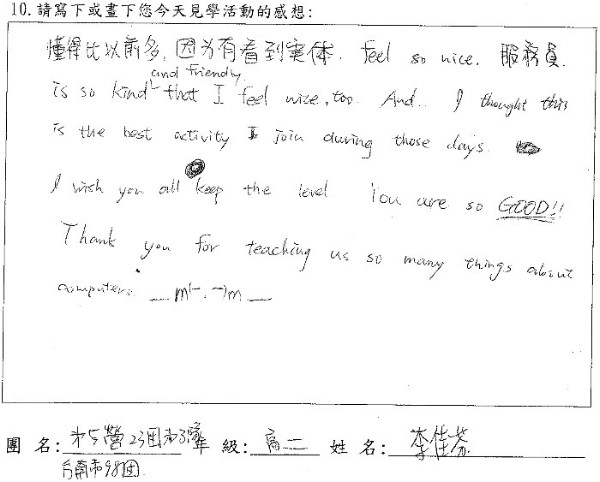 10. 請寫下或畫下您今天見學活動的感想:
懂得比以前多, 因为有看到實体. feel so nice. 服務員
and friendly
is so kind that I feel nice, too. And.. I thought this
is the best activity I join during those days.
I wish you all keep the level You are so GOOD!!
Thank you for teaching us so many things about
computers. __m(-.-)m__
團 名: 第5營23团第3隊 年 級: 高二 姓 名: 李佳芬
台南市98团.